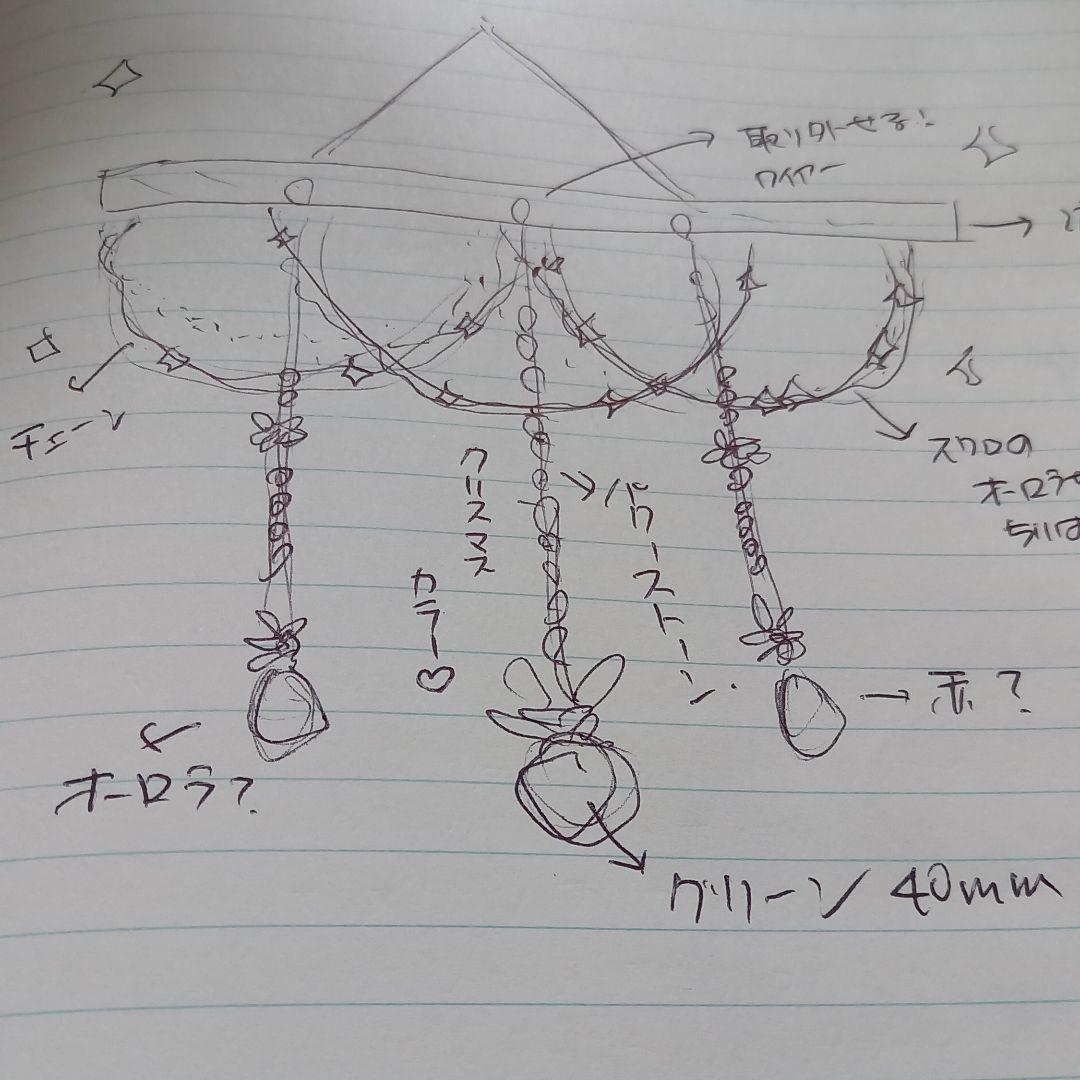 取り外せる:
ワイヤー
チェーン
スワロの
オーロラ
ちりば
クリスマス
カラー♡
パワーストーン.
赤?
オーロラ?
グリーン 40mm